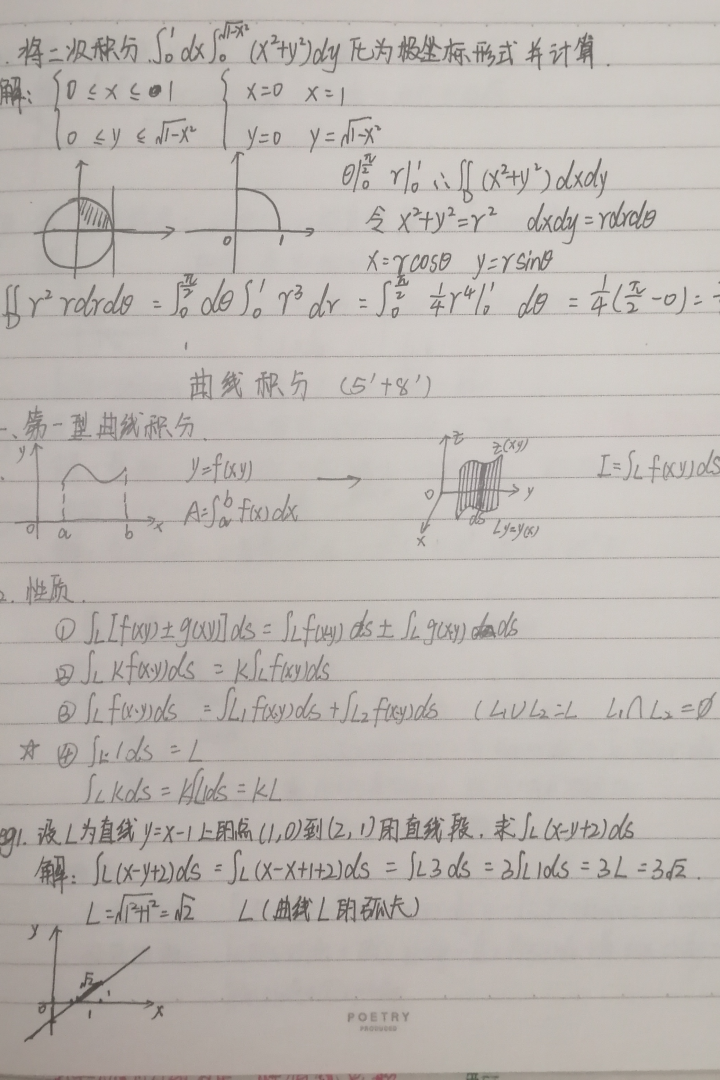 . 将二次积分 ∫₀¹dx∫₀^√(1-x²) (x²+y²)dy 化为极坐标形式并计算.
解: { 0 ≤ x ≤ 1 { x=0 x=1
0 ≤ y ≤ √(1-x²) y=0 y=√(1-x²)
θ|₀^(π/2) r|₀¹ ∴∬_D (x²+y²)dxdy
0 1 令 x²+y²=r² dxdy=rdrdθ
x=rcosθ y=rsinθ
∬_D r² rdrdθ = ∫₀^(π/2) dθ∫₀¹ r³dr = ∫₀^(π/2) ¼r⁴|₀¹ dθ = ¼(π/2 -0) =
曲线积分 (5'+8')
一、第一型曲线积分.
y z z(xy)
y=f(xy) → I=∫_L f(xy)ds
A=∫ₐᵇf(x)dx 0 y
0 a b x x ds Ly=y(x)
2. 性质.
① ∫_L[f(xy)±g(xy)]ds = ∫_L f(xy)ds ± ∫_L g(xy)ds
② ∫_L kf(x·y)ds = k∫_L f(xy)ds
③ ∫_L f(x·y)ds = ∫_L₁ f(xy)ds+∫_L₂ f(xy)ds (L₁∪L₂=L L₁∩L₂=∅
☆ ④ ∫_L 1ds = L
∫_L kds = k∫_L 1ds = kL
eg1. 设L为直线y=x-1上的点(1,0)到(2,1)的直线段. 求∫_L(x-y+2)ds
解: ∫_L(x-y+2)ds = ∫_L(x-x+1+2)ds = ∫_L 3ds = 3∫_L 1ds = 3L = 3√2.
L=√(1²+1²)=√2 L(曲线L的弧长)
y
√2
1
0 1 x
POETRY
PRODUCED